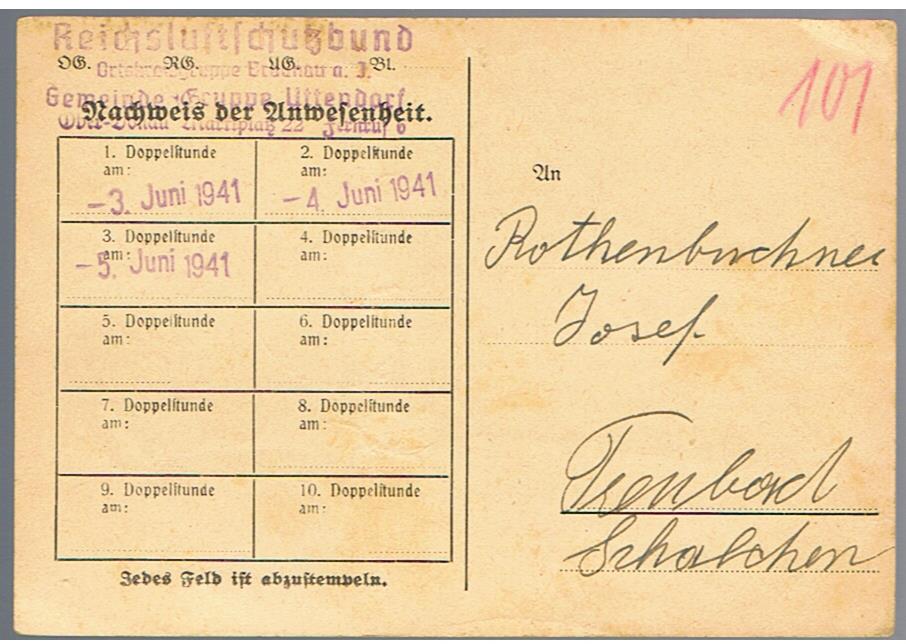 Reichsluftschutzbund
OG. RG. UG. Bl.
Ortskreisgruppe Braunau a. I.
Gemeinde-Gruppe Uttendorf
Nachweis der Anwesenheit.
Ober-Donau Marktplatz 22 Fernruf 6
1. Doppelstunde
am:
-3. Juni 1941
2. Doppelstunde
am:
-4. Juni 1941
3. Doppelstunde
am:
-5. Juni 1941
4. Doppelstunde
am:
5. Doppelstunde
am:
6. Doppelstunde
am:
7. Doppelstunde
am:
8. Doppelstunde
am:
9. Doppelstunde
am:
10. Doppelstunde
am:
Jedes Feld ist abzustempeln.
101
An
Rothenbuchner
Josef
Schalchen